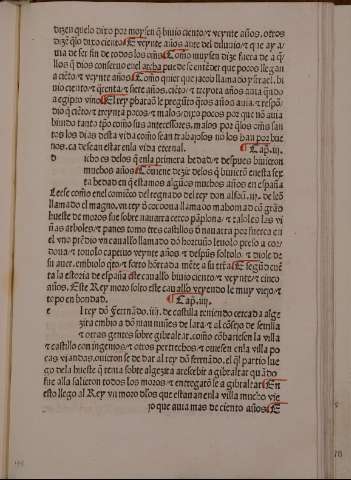 dizen quelo dixo por moysen q̄ biuio ciento ⁊ veynte años. otros
dizē q̄lo dixo ciento ⁊ veynte años ante del diluuio / ⁊ q̄ le ay a/
uia de ser fin de todos los oñs Como nuy dize fuera de a q̄
llos q̄ dios conseruo enel archa puedese entēder que pocos llegan
a ciēto / ⁊ veynte años Como quier que jacob llamado ysrael. bi
uio ciento ⁊ q̄renta ⁊ siete años. ciēto / ⁊ treynta años auia q̄ndo
a egipto vino El rey pharaō le pregūto q̄tos años auia / ⁊ respō/
dio q̄ ciēto / ⁊ treynta pocos / ⁊ malos / dixo pocos por que nō auia
biuido tanto tpō como sus antecessores. malos por q̄los oñs san
tos los dias desta vida como sean trabajosos no los han por bue
nos. ca desean estar enla vida eternal. Cap. iij.
d icho es delos q̄ enla primera hedad / ⁊ despues biuieron
muchos años Cōuiene dezir delos q̄ biuierō enesta sex
ta hedad en q̄ estamos algūos muchos años en españa
Leese como enel comiēço del regnado del rey don alfōn. iij. de leō
llamado el magno. vn rey d̄ cordoua llamado mahomad cō grād
hueste de moros fue sobre nauarra cerco pāplona / ⁊ talo les las vi
ñas arboles / ⁊ panes tomo tres castillos d̄ nauarra por fuerça en
el vno prēdio vn cauallo llamado dō hortuño leuolo preso a cor/
doua / ⁊ touolo captiuo veynte años / ⁊ despūs soltolo / ⁊ diole de
su auer. embiolo q̄to ⁊ forro hōrrada mēte a su trrā E segūd cuē
ta la estoria de españa este cauallo biuio ciento / ⁊ veynte / ⁊ cinco
años. Este Rey moro solto este cauallo veyendo le muy viejo / ⁊
tepo en bondad. Cap. iiij.
e l rey dō ferrnādo. iiij. de castilla teniendo cercada alge
zira embio a dō juan nuñes de lara / ⁊ al cōsejo de seuilla
⁊ otras gentes sobre gibraltar. como cōbatiesen la villa
⁊ castillo con ingenios / ⁊ otros pertrechos / ⁊ ouiesen enla villa po
cas viandas. ouieron se de dar al rey dō fernādo. el q̄l partio lue
go dela hueste q̄ tenia sobre algezira a rescebir a gibraltar quādo
fue alla salieron todos los moros / ⁊ entregarō le a gibraltar En
esto llego al Rey vn moro dlos que estauan enla villa mucho vie
jo que auia mas de ciento años E